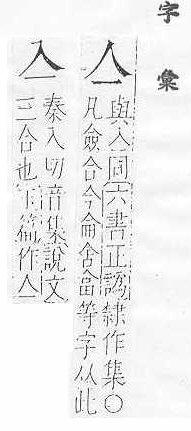 字彙
亼
與入同六書正譌隸作集○
凡僉合今侖舍畣等字从此
亼
秦入切音集說文
三合也玉篇作亼